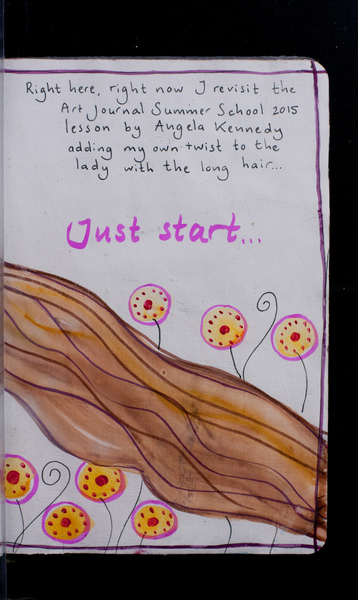 Right here, right now I revisit the
Art Journal Summer School 2015
lesson by Angela Kennedy
adding my own twist to the
lady with the long hair...
Just start...